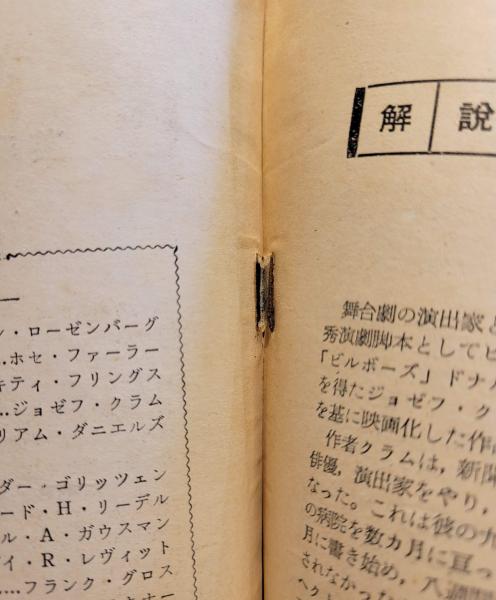 ン・ローゼンバーグ
ホセ・ファーラー
キティ・フリングス
ジョゼフ・クラム
リアム・ダニエルズ
ダー・ゴリッツェン
ード・H・リーデル
ル・A・ガウスマン
イ・R・レヴィット
フランク・グロス
解說
舞台劇の演出家
秀演劇脚本としてピ
「ビルボーズ」ドナ
を得たジョゼフ・ク
を基に映画化した作
作者クラムは，新聞
俳優，演出家をやり，
なった。これは彼の九
の病院を数カ月に亘っ
月に書き始め，八週間
されなかった
ヘクト